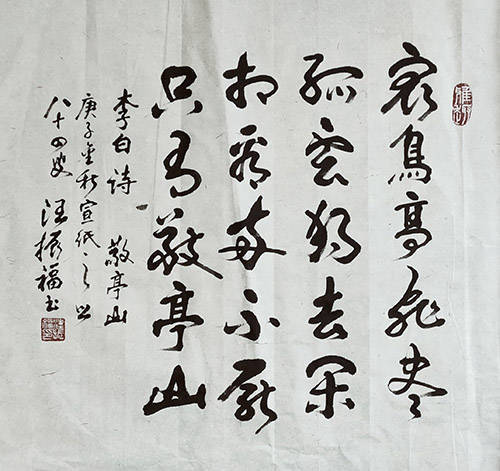 众鳥高飛尽
孤雲独去闲
相看两不厭
只有敬亭山
李白诗 敬亭山
庚子金秋宣纸之乡
八十四叟 汪振福书